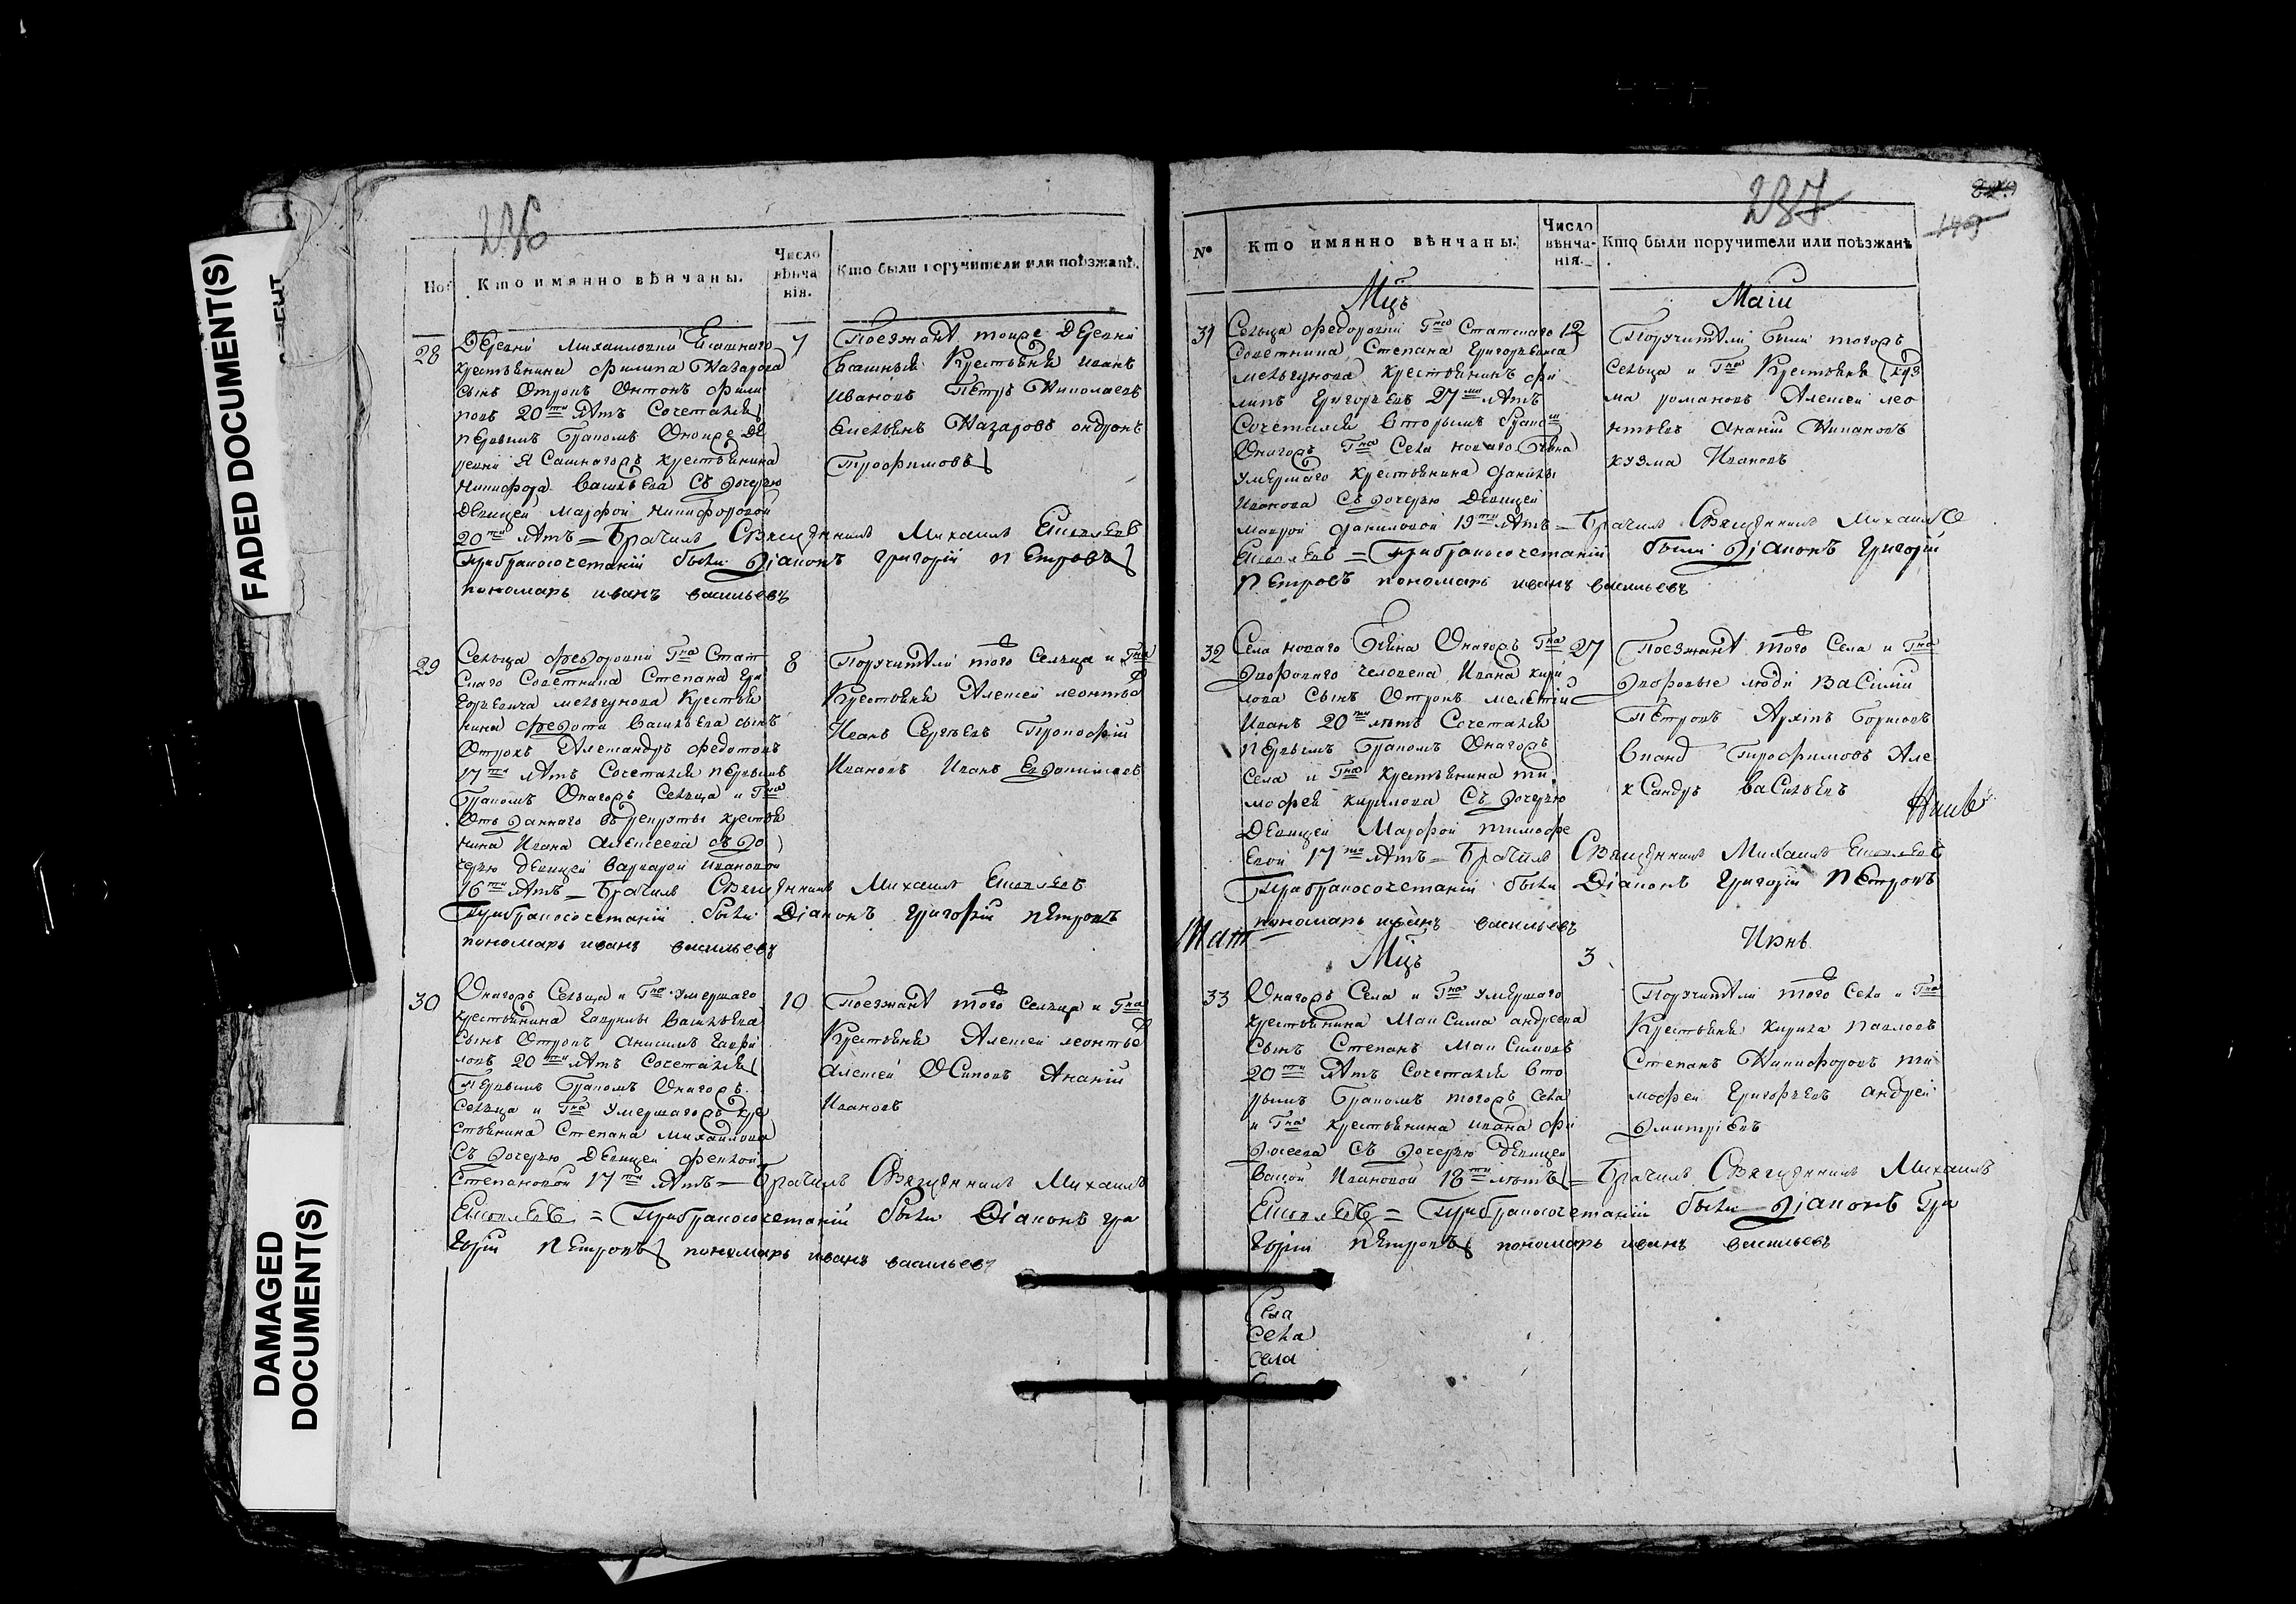 FADED DOCUMENT(S)
DAMAGED
DOCUMENT(S)
236
Но:
Кто имянно вѣнчаны.
Число
вѣнча
нія.
Кто были поручители или поѣзжанѣ.
28
Деревни Михаиловки
крестьянина Филипа Назарова
сынъ Отрокъ Онтонъ Фили
повъ 20ти лѣтъ Сочетался
первымъ бракомъ Оноиже де
ревни Ясашнагожъ крестьянина
Никифора Васильева съ дочерью
Девицей Марфой Никифоровой
20ти лѣтъ = Брачилъ Священникъ Михаилъ
Прибракосочетаніи были Діаконъ Григорій Петровъ
пономарь иванъ васильевъ
7
Поезжанѣ тоиже Деревни
Ясашныя Крестьяне иванъ
ивановъ Петръ Николаевъ
Емельянъ Назаровъ ондронъ
Трофимовъ
29
Сельца Федоровки Гна Стат
скаго Советника Степана Гри
горьевича мельгунова Крестья
нина Федота Васильева сынъ
Отрокъ Александръ Федотовъ
17ти лѣтъ Сочетался первымъ
бракомъ Онагожъ Сельца и Гна
Отъданнаго въ рекруты крестья
нина Ивана Алексеева съ до
черью девицей Варварой Ивановой
16ти лѣтъ = Брачилъ Священникъ Михаилъ
Прибракосочетаніи были Діаконъ Григорій Петровъ
пономарь иванъ васильевъ
8
Поручители того Сельца и Гна
Крестьяне Алексеи леонтье
Иванъ Сергѣевъ Прокофій
Ивановъ Иванъ Евдокимовъ
30
Онагожъ Сельца и Гна Умершаго
крестьянина Гаврилы Васильева
сынъ Отрокъ Анисимъ Гаври
ловъ 20ти лѣтъ Сочетался
Первымъ бракомъ Онагожъ
Сельца и Гна Умершагожъ кре
стьянина Степана михаилова
съ дочерью Девицей Феклой
Степановой 17ти лѣтъ = Брачилъ Священникъ Михаилъ
= Прибракосочетаніи были Діаконъ Гри
горій Петровъ пономарь иванъ васильевъ
10
Поезжанѣ того сельца и Гна
Крестьяне Алексеи леонтье
Алексей Осиповъ Ананій
Ивановъ
237
№
Кто имянно вѣнчаны.
Число
вѣнча-
нія.
Кто были поручители или поѣзжанѣ
Мцъ
Маіи
31
Сельца Федоровки Гна Статскаго
Советника Степана Григорьевича
мельгунова крестьянинъ Фи
липъ Григорьевъ 27ми лѣтъ
Сочетался вторымъ брако
Онагожъ Гна Села новаго
умершаго крестьянина Данилы
Иванова съ дочерью Девицей
маврой Даниловой 19ти лѣтъ = Брачилъ Священникъ Михаилъ
= Прибракосочетаніи были Діаконъ Григорій
Петровъ пономарь иванъ васильевъ
12
Поручители были тогожъ
Сельца и Гна Крестьяне
ма романовъ Алексеи лео
нтьевъ Ананій
кузма Ивановъ
32
Села новаго Онагожъ Гна
Двороваго человека Ивана кири
лова сынъ Отрокъ
Иванъ 20ти лѣтъ Сочетался
Первымъ бракомъ Онагожъ
Села и Гна крестьянина ти
мофея кирилова съ дочерью
Девицей Марфой тимофе
евой 17ти лѣтъ = Брачилъ Священникъ Михаилъ
Прибракосочетаніи были Діаконъ Григорій Петровъ
пономарь иванъ васильевъ
27
Поезжанѣ того Села и Гна
Дворовые люди Василій
Петровъ
Трофимовъ Але
ксандръ Васильевъ
Мцъ
3
Июнь
33
Онагожъ Села и Гна Умершаго
крестьянина Максима андреева
сынъ Степанъ Максимовъ
20ти лѣтъ Сочетался вто
рымъ бракомъ тогожъ Села
и Гна крестьянина ивана Фи
досеева съ дочерью Девицей
Васой Ивановой 18ти лѣтъ = Брачилъ Священникъ Михаилъ
= Прибракосочетаніи были Діаконъ Гри
горій Петровъ пономарь иванъ васильевъ
Поручители того Села и Гна
Крестьяне кирила павловъ
Степанъ Никифоровъ ти
мофеи Григорьевъ андрей
Дмитріевъ
Села
села
села